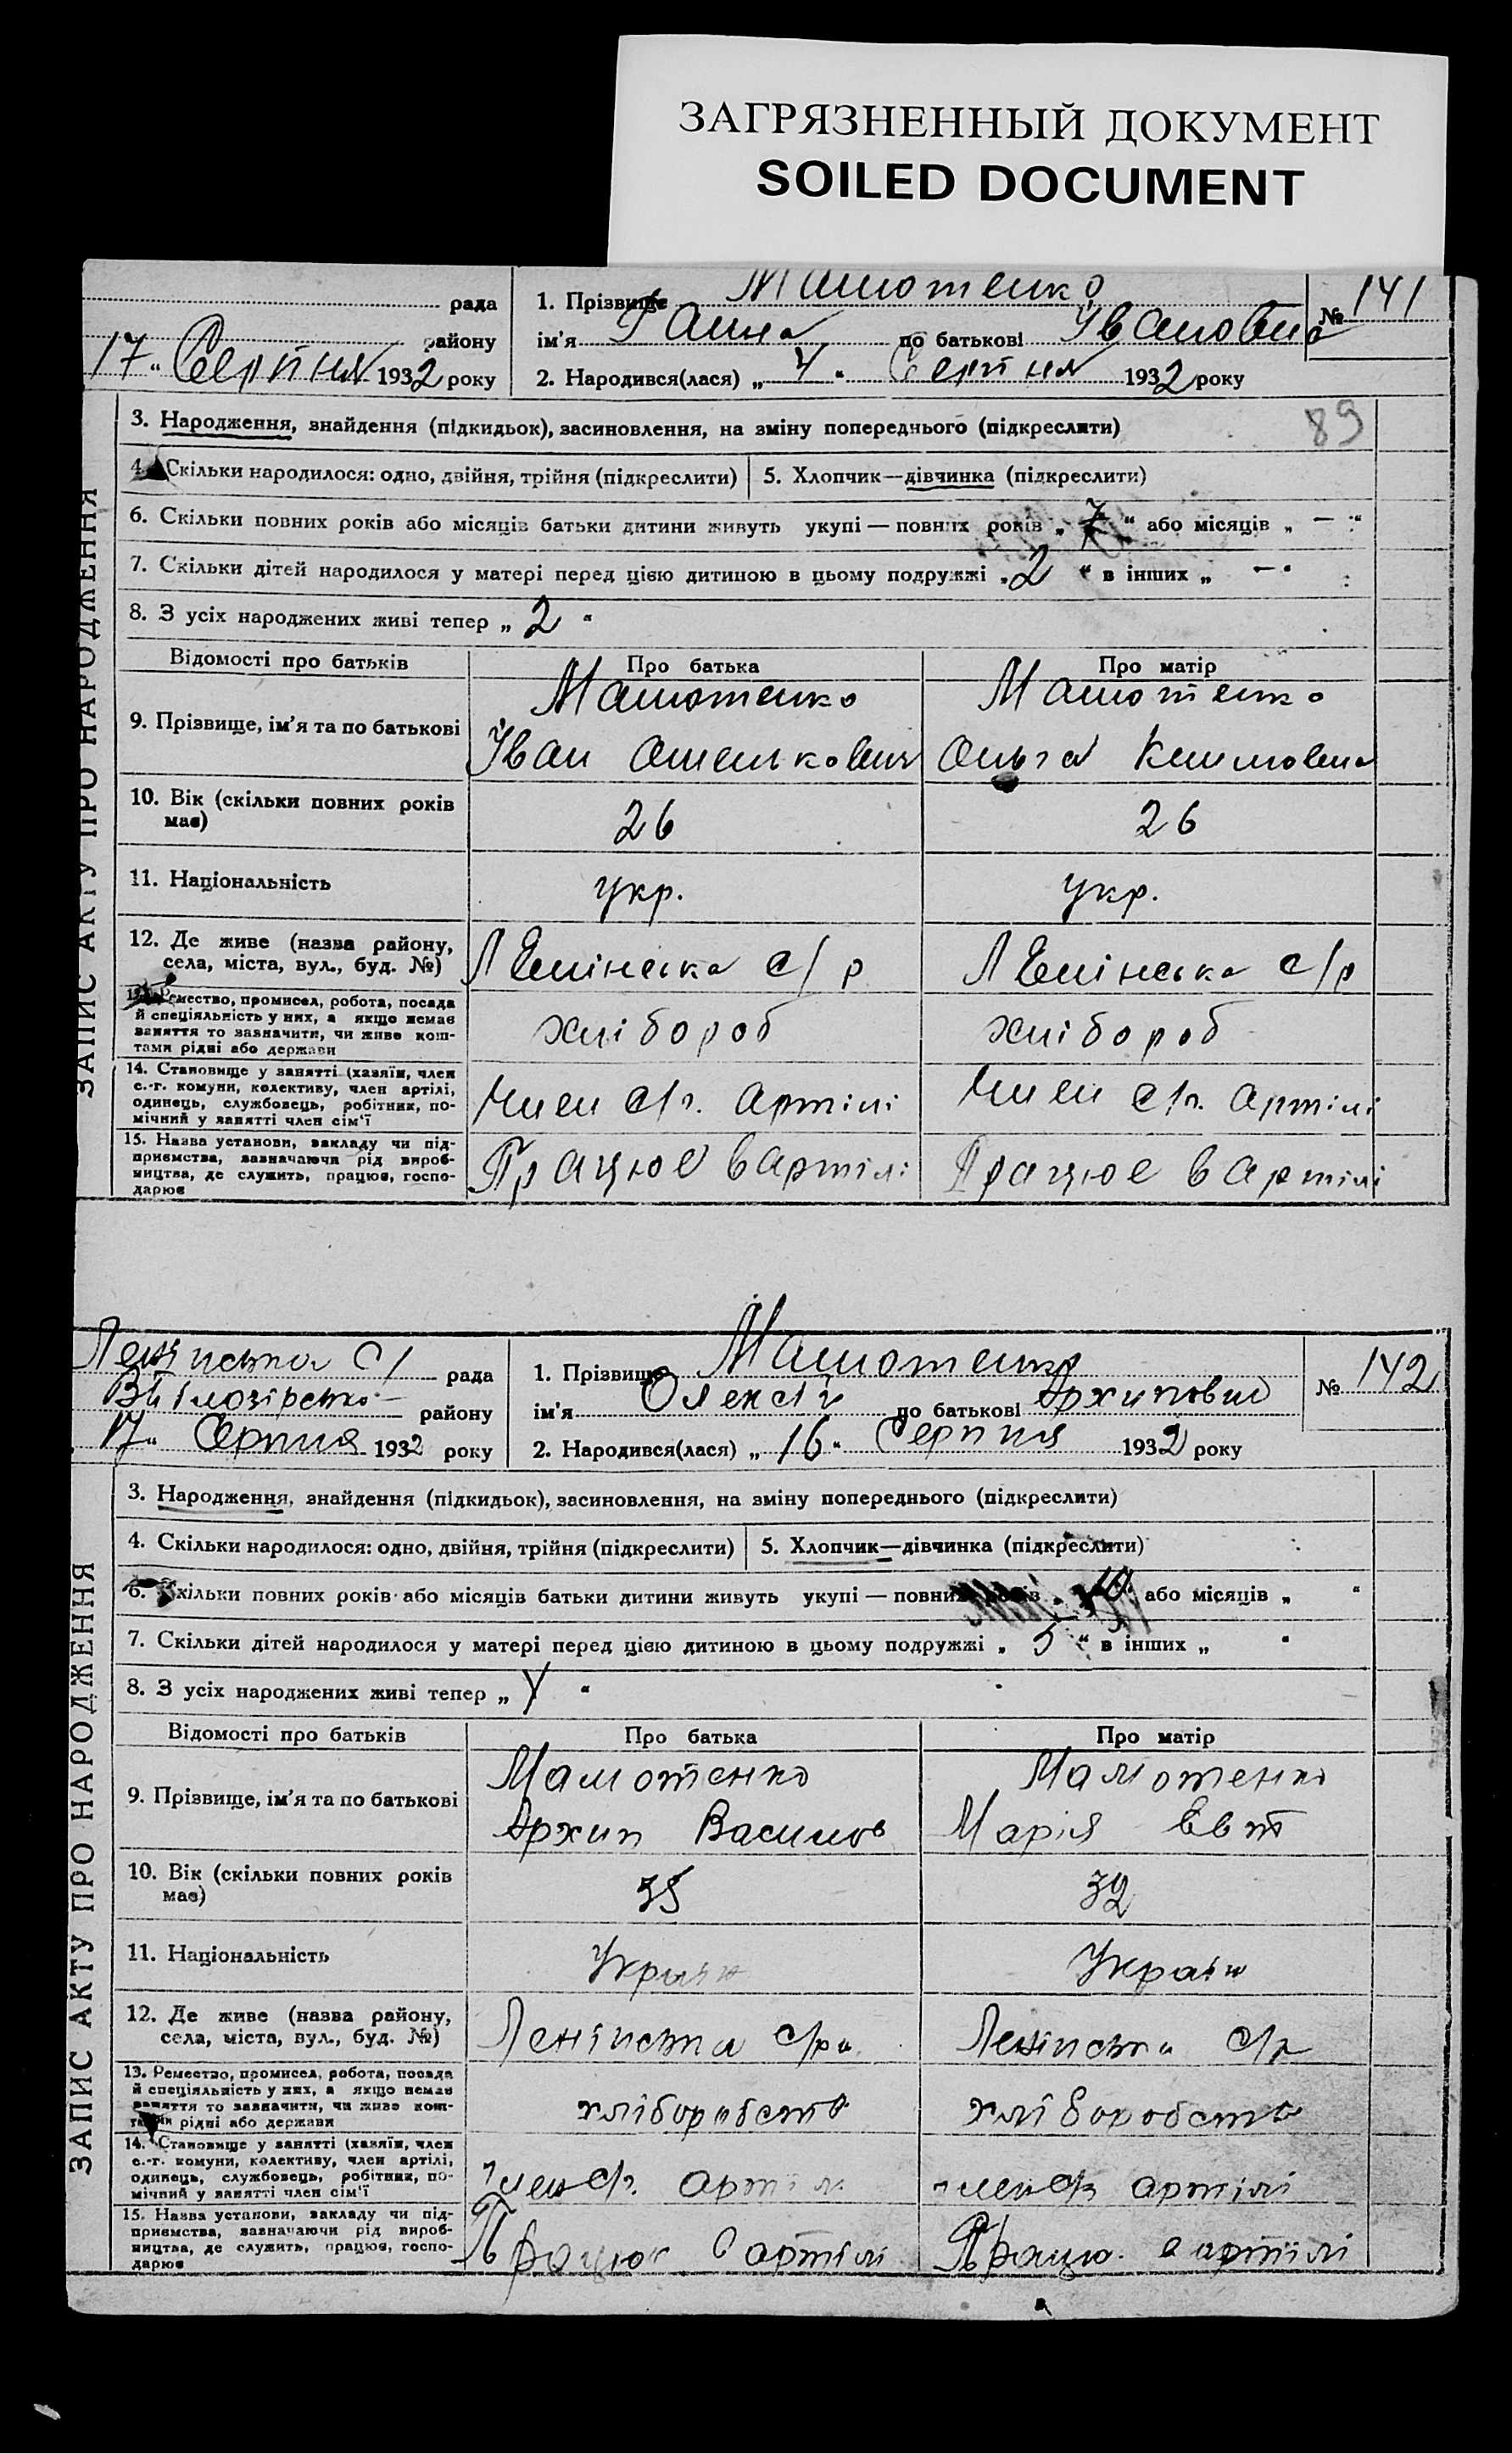 ЗАГРЯЗНЕННЫЙ ДОКУМЕНТ
SOILED DOCUMENT
рада
району
17 " Серпня 1932 року
1. Прізвище Малютенко
ім'я Ганна по батькові Івановна
2. Народився(лася) „ 4 " Серпня 1932 року
№ 141
ЗАПИС АКТУ ПРО НАРОДЖЕННЯ
3. Народження, знайдення (підкидьок), засиновлення, на зміну попереднього (підкреслити)
89
4. Скільки народилося: одно, двійня, трійня (підкреслити)
5. Хлопчик—дівчинка (підкреслити)
6. Скільки повних років або місяців батьки дитини живуть укупі — повних років „ 7 " або місяців „ — "
7. Скільки дітей народилося у матері перед цією дитиною в цьому подружжі „ 2 " в інших „ — "
8. З усіх народжених живі тепер „ 2 "
Відомості про батьків
Про батька
Про матір
9. Прізвище, ім'я та по батькові
Малютенко
Іван
Малютенко
Ольга Климовна
10. Вік (скільки повних років
має)
26
26
11. Національність
укр.
укр.
12. Де живе (назва району,
села, міста, вул., буд. №)
Ленінська с/р
Ленінська с/р
Ремество, промисел, робота, посада
й спеціяльність у них, а якщо немає
заняття то зазначити, чи живе кош-
тами рідні або держави
хлібороб
хлібороб
14. Становище у занятті (хазяїн, член
с.-г. комуни, колективу, член артілі,
одинець, службовець, робітник, по-
мічний у занятті член сім'ї
Член с/г. артілі
Член с/г. артілі
15. Назва установи, закладу чи під-
приємства, зазначаючи рід вироб-
ництва, де служить, працює, госпо-
дарює
Працює в артілі
Працює в артілі
Ленінська С/ рада
району
17 " Серпня 1932 року
1. Прізвище Малютенко
ім'я Олексій по батькові Архипович
2. Народився(лася) „ 16 " Серпня 1932 року
№ 142
ЗАПИС АКТУ ПРО НАРОДЖЕННЯ
3. Народження, знайдення (підкидьок), засиновлення, на зміну попереднього (підкреслити)
4. Скільки народилося: одно, двійня, трійня (підкреслити)
5. Хлопчик—дівчинка (підкреслити)
6. Скільки повних років або місяців батьки дитини живуть укупі — повних років „ " або місяців „ "
7. Скільки дітей народилося у матері перед цією дитиною в цьому подружжі „ 5 " в інших „ "
8. З усіх народжених живі тепер „ "
Відомості про батьків
Про батька
Про матір
9. Прізвище, ім'я та по батькові
Малютенко
Архип Васильов
Малютенко
Марія Евт
10. Вік (скільки повних років
має)
35
32
11. Національність
Україн
Україн
12. Де живе (назва району,
села, міста, вул., буд. №)
Ленінська с/ра
Ленінська с/р
13. Ремество, промисел, робота, посада
й спеціяльність у них, а якщо немає
заняття то зазначити, чи живе кош-
тами рідні або держави
хліборобств
хліборобств
14. Становище у занятті (хазяїн, член
с.-г. комуни, колективу, член артілі,
одинець, службовець, робітник, по-
мічний у занятті член сім'ї
член с/г. артілі
член с/г артілі
15. Назва установи, закладу чи під-
приємства, зазначаючи рід вироб-
ництва, де служить, працює, госпо-
дарює
Працює в артілі
Працю. в артілі